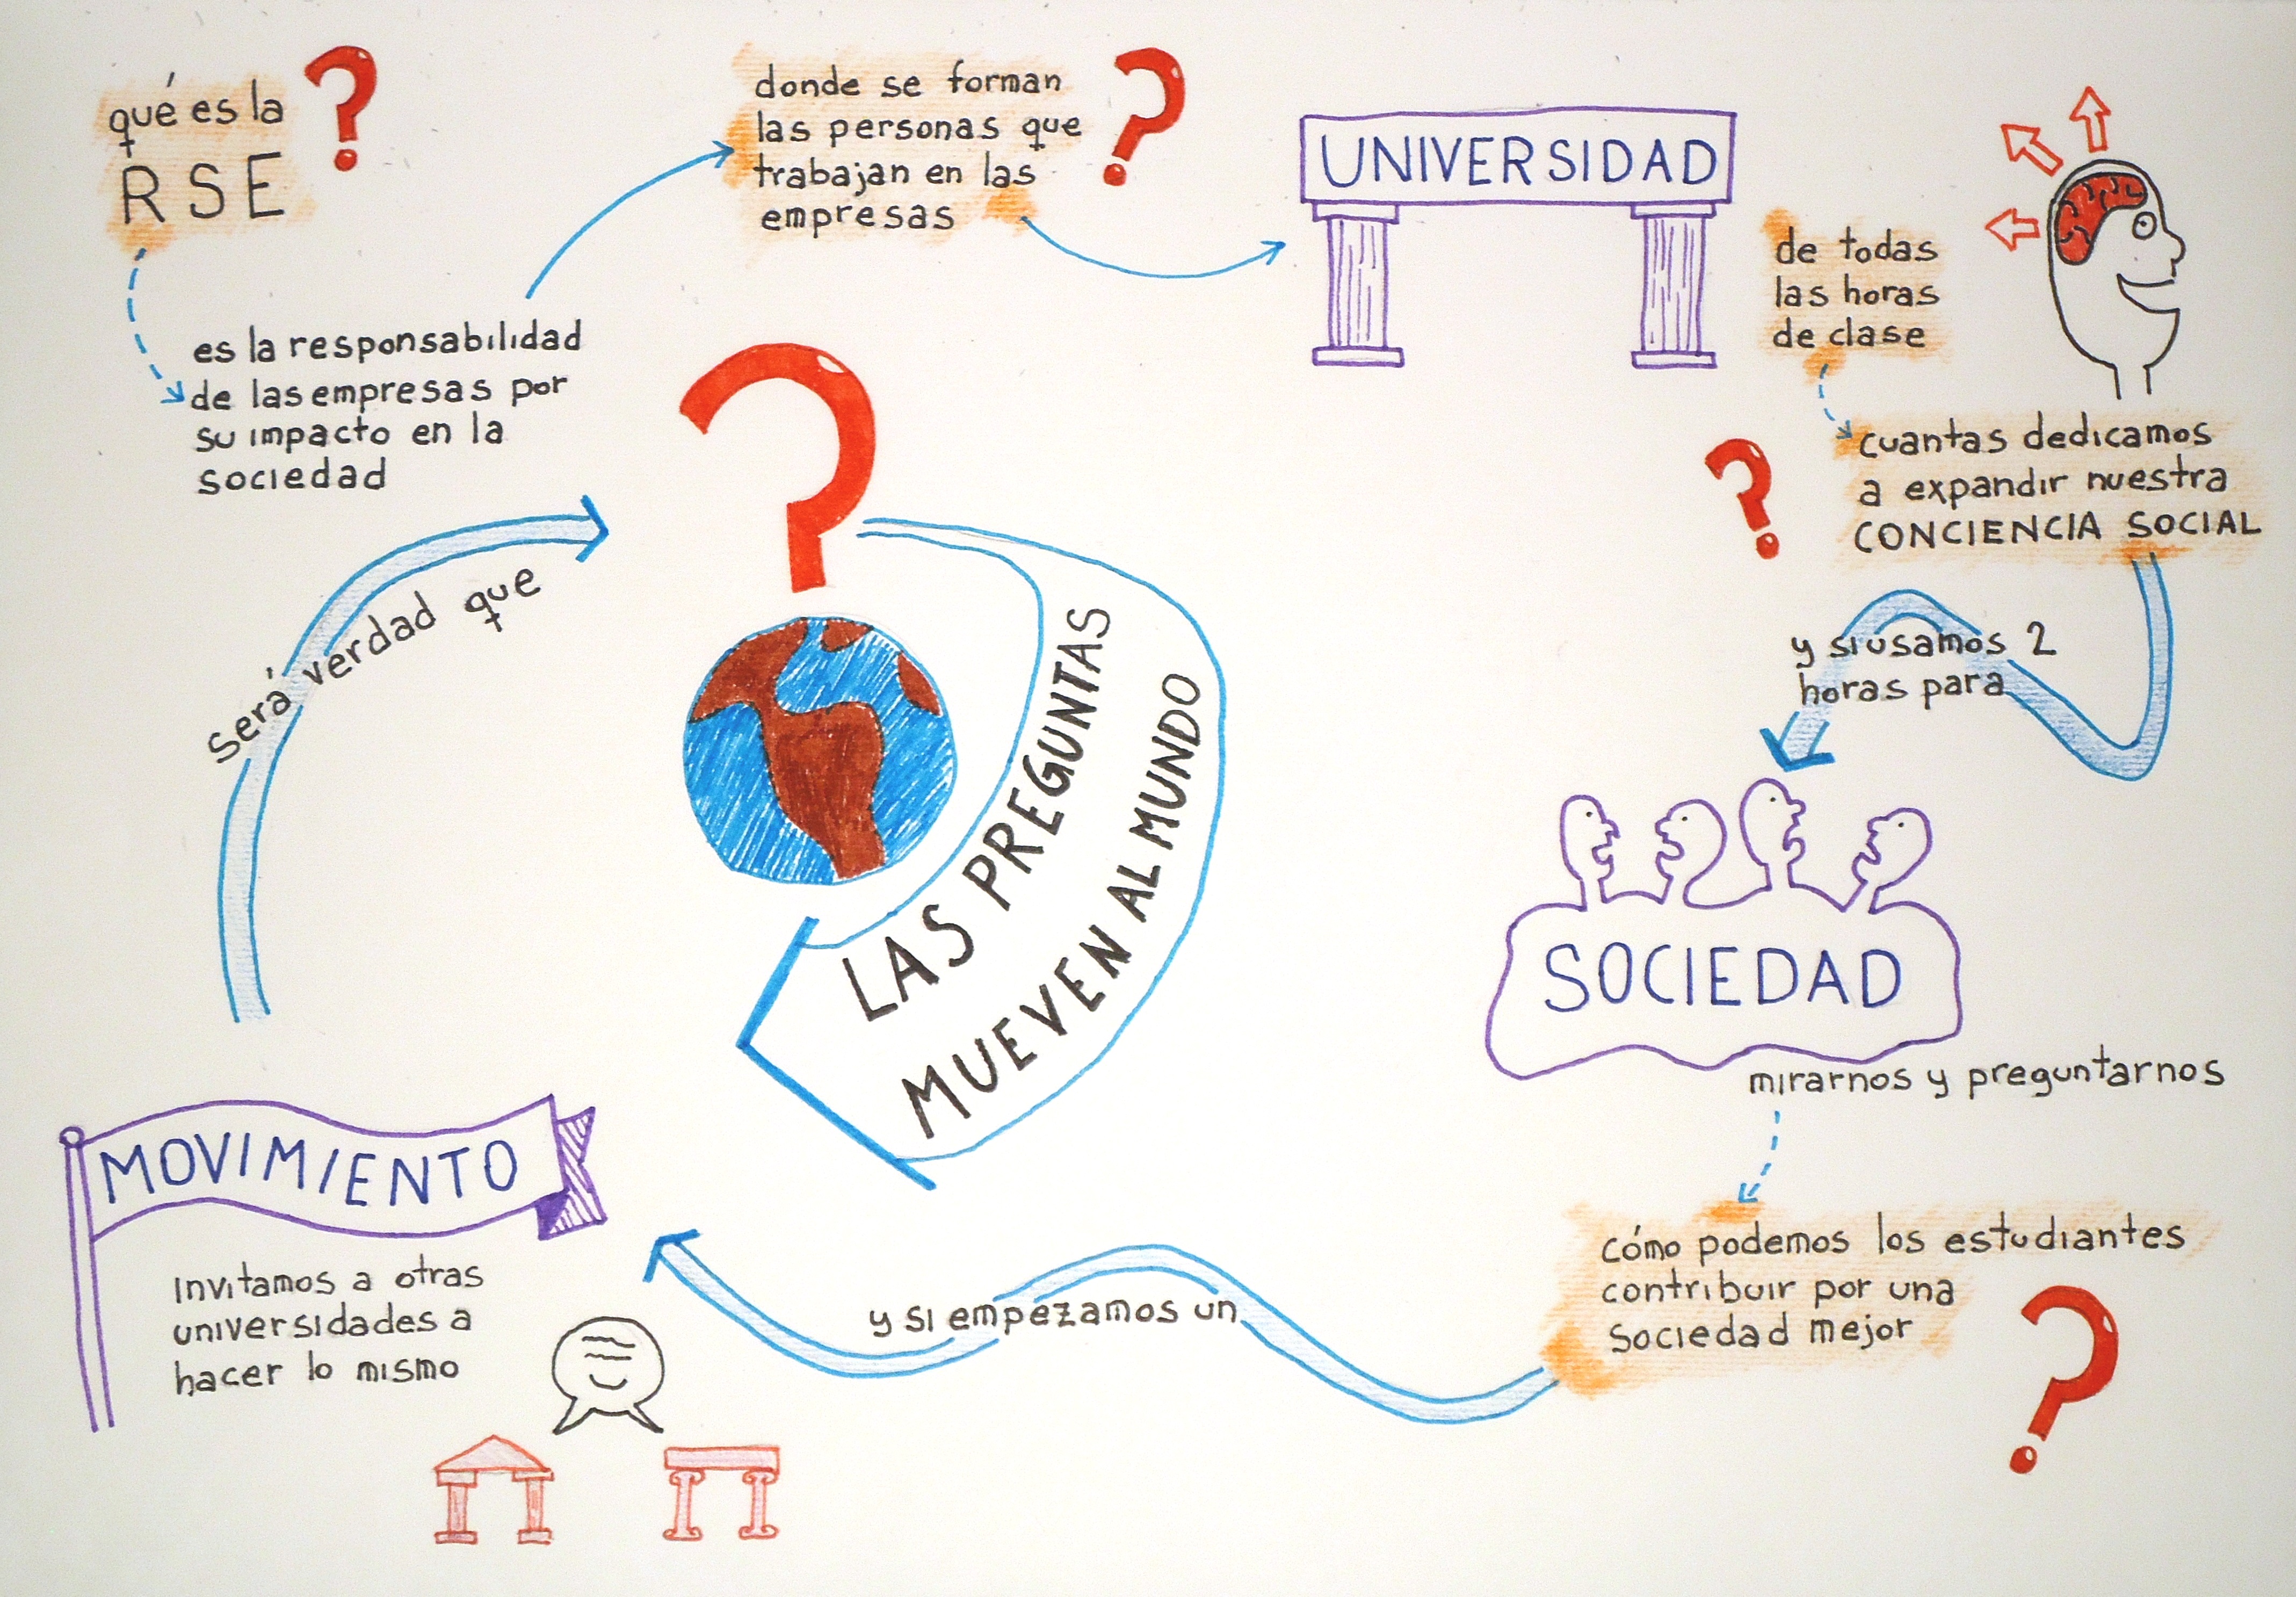 qué es la
RSE
?
es la responsabilidad
de las empresas por
su impacto en la
sociedad
donde se forman
las personas que
trabajan en las
empresas
?
UNIVERSIDAD
de todas
las horas
de clase
cuantas dedicamos
a expandir nuestra
CONCIENCIA SOCIAL
?
y si usamos 2
horas para
SOCIEDAD
mirarnos y preguntarnos
cómo podemos los estudiantes
contribuir por una
sociedad mejor
?
y si empezamos un
MOVIMIENTO
invitamos a otras
universidades a
hacer lo mismo
Será verdad que
?
LAS PREGUNTAS
MUEVEN AL MUNDO